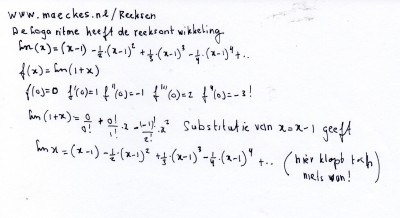 www.maeckes.nl/Reeksen
De logaritme heeft de reeksontwikkeling
ln(x) = (x-1) - ½·(x-1)² + ⅓·(x-1)³ - ¼·(x-1)⁴ + ..
f(x) = ln(1+x)
f(0)=0 f'(0)=1 f''(0)=-1 f'''(0)=2 f⁴(0)=-3!
ln(1+x) = 0/0! + 0!/1!·x - (-1)!/2!·x² Substitutie van x=x-1 geeft
ln x = (x-1) - ½·(x-1)² + ⅓·(x-1)³ - ¼(x-1)⁴ + .. (hier klopt toch niets van!)